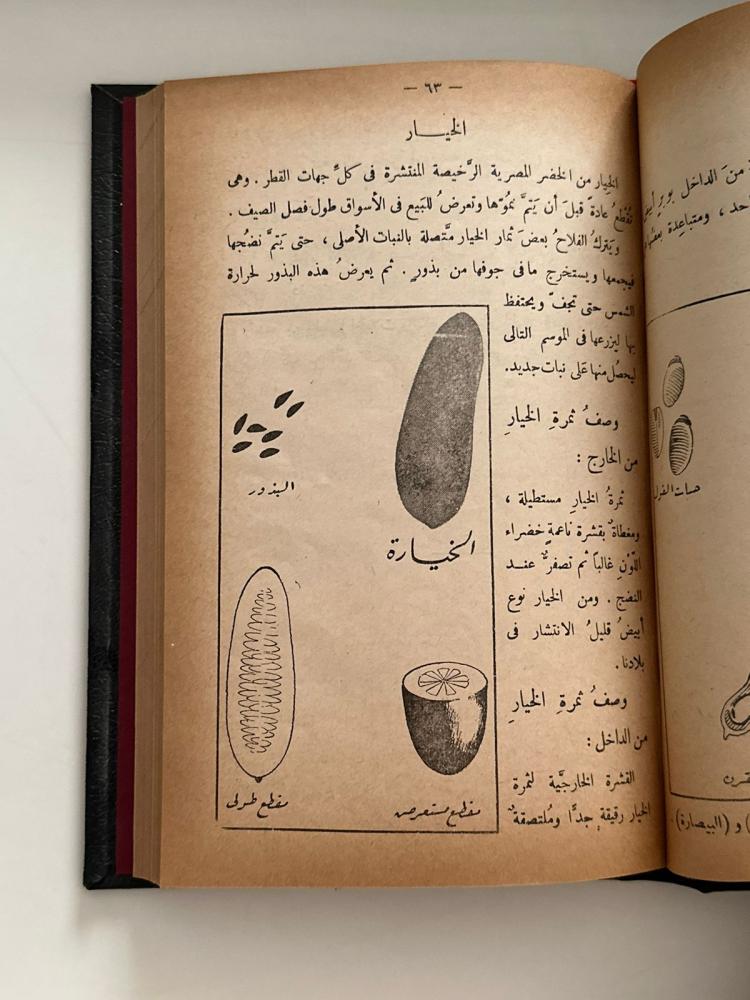 — ٦٣ —
الخيــار
الخيار من الخضر المصرية الرَّخيصة المنتشرة فى كلِّ جهات القطر . وهى
تُقْطَعُ عادةً قبلَ أن يَتمَّ نموّها وتعرضُ للبَيع فى الأسواق طول فصل الصيف .
ويَتركُ الفلاحُ بعضَ ثمار الخيار متَّصلة بالنبات الأصلى ، حتى يَتمَّ نضجُها
فيجمعها ويستخرج ما فى جوفها من بذورٍ . ثم يعرضُ هذه البذور لحرارة
الشمس حتى تجفّ ويحتفظ
بها ليزرعها فى الموسم التالى
ليحصُل منها عَلى نبات جديد.
وصفُ ثمرةِ الخيارِ
من الخارج :
ثمرةُ الخيارِ مستطيلة ،
ومغطاةٌ بقشرة ناعمةٍ خضراء
اللَّوْنِ غالباً ثم تصفرُّ عنـد
النضج . ومن الخيار نوع
أبيضُ قليلُ الانتشار فى
بلادنا .
وصفُ ثمرةِ الخيارِ
من الداخل :
القشرة الخارجيَّة لثمرة
الخيار رقيقة جدًّا ومُلتصقةٌ
البذور
الخيارة
مقطع طولى
مقطع مستعرض
من الداخل بوبر أبيض
، ومتباعدة بعضها
حبات الفول
القرن
) و (البيصارة) .